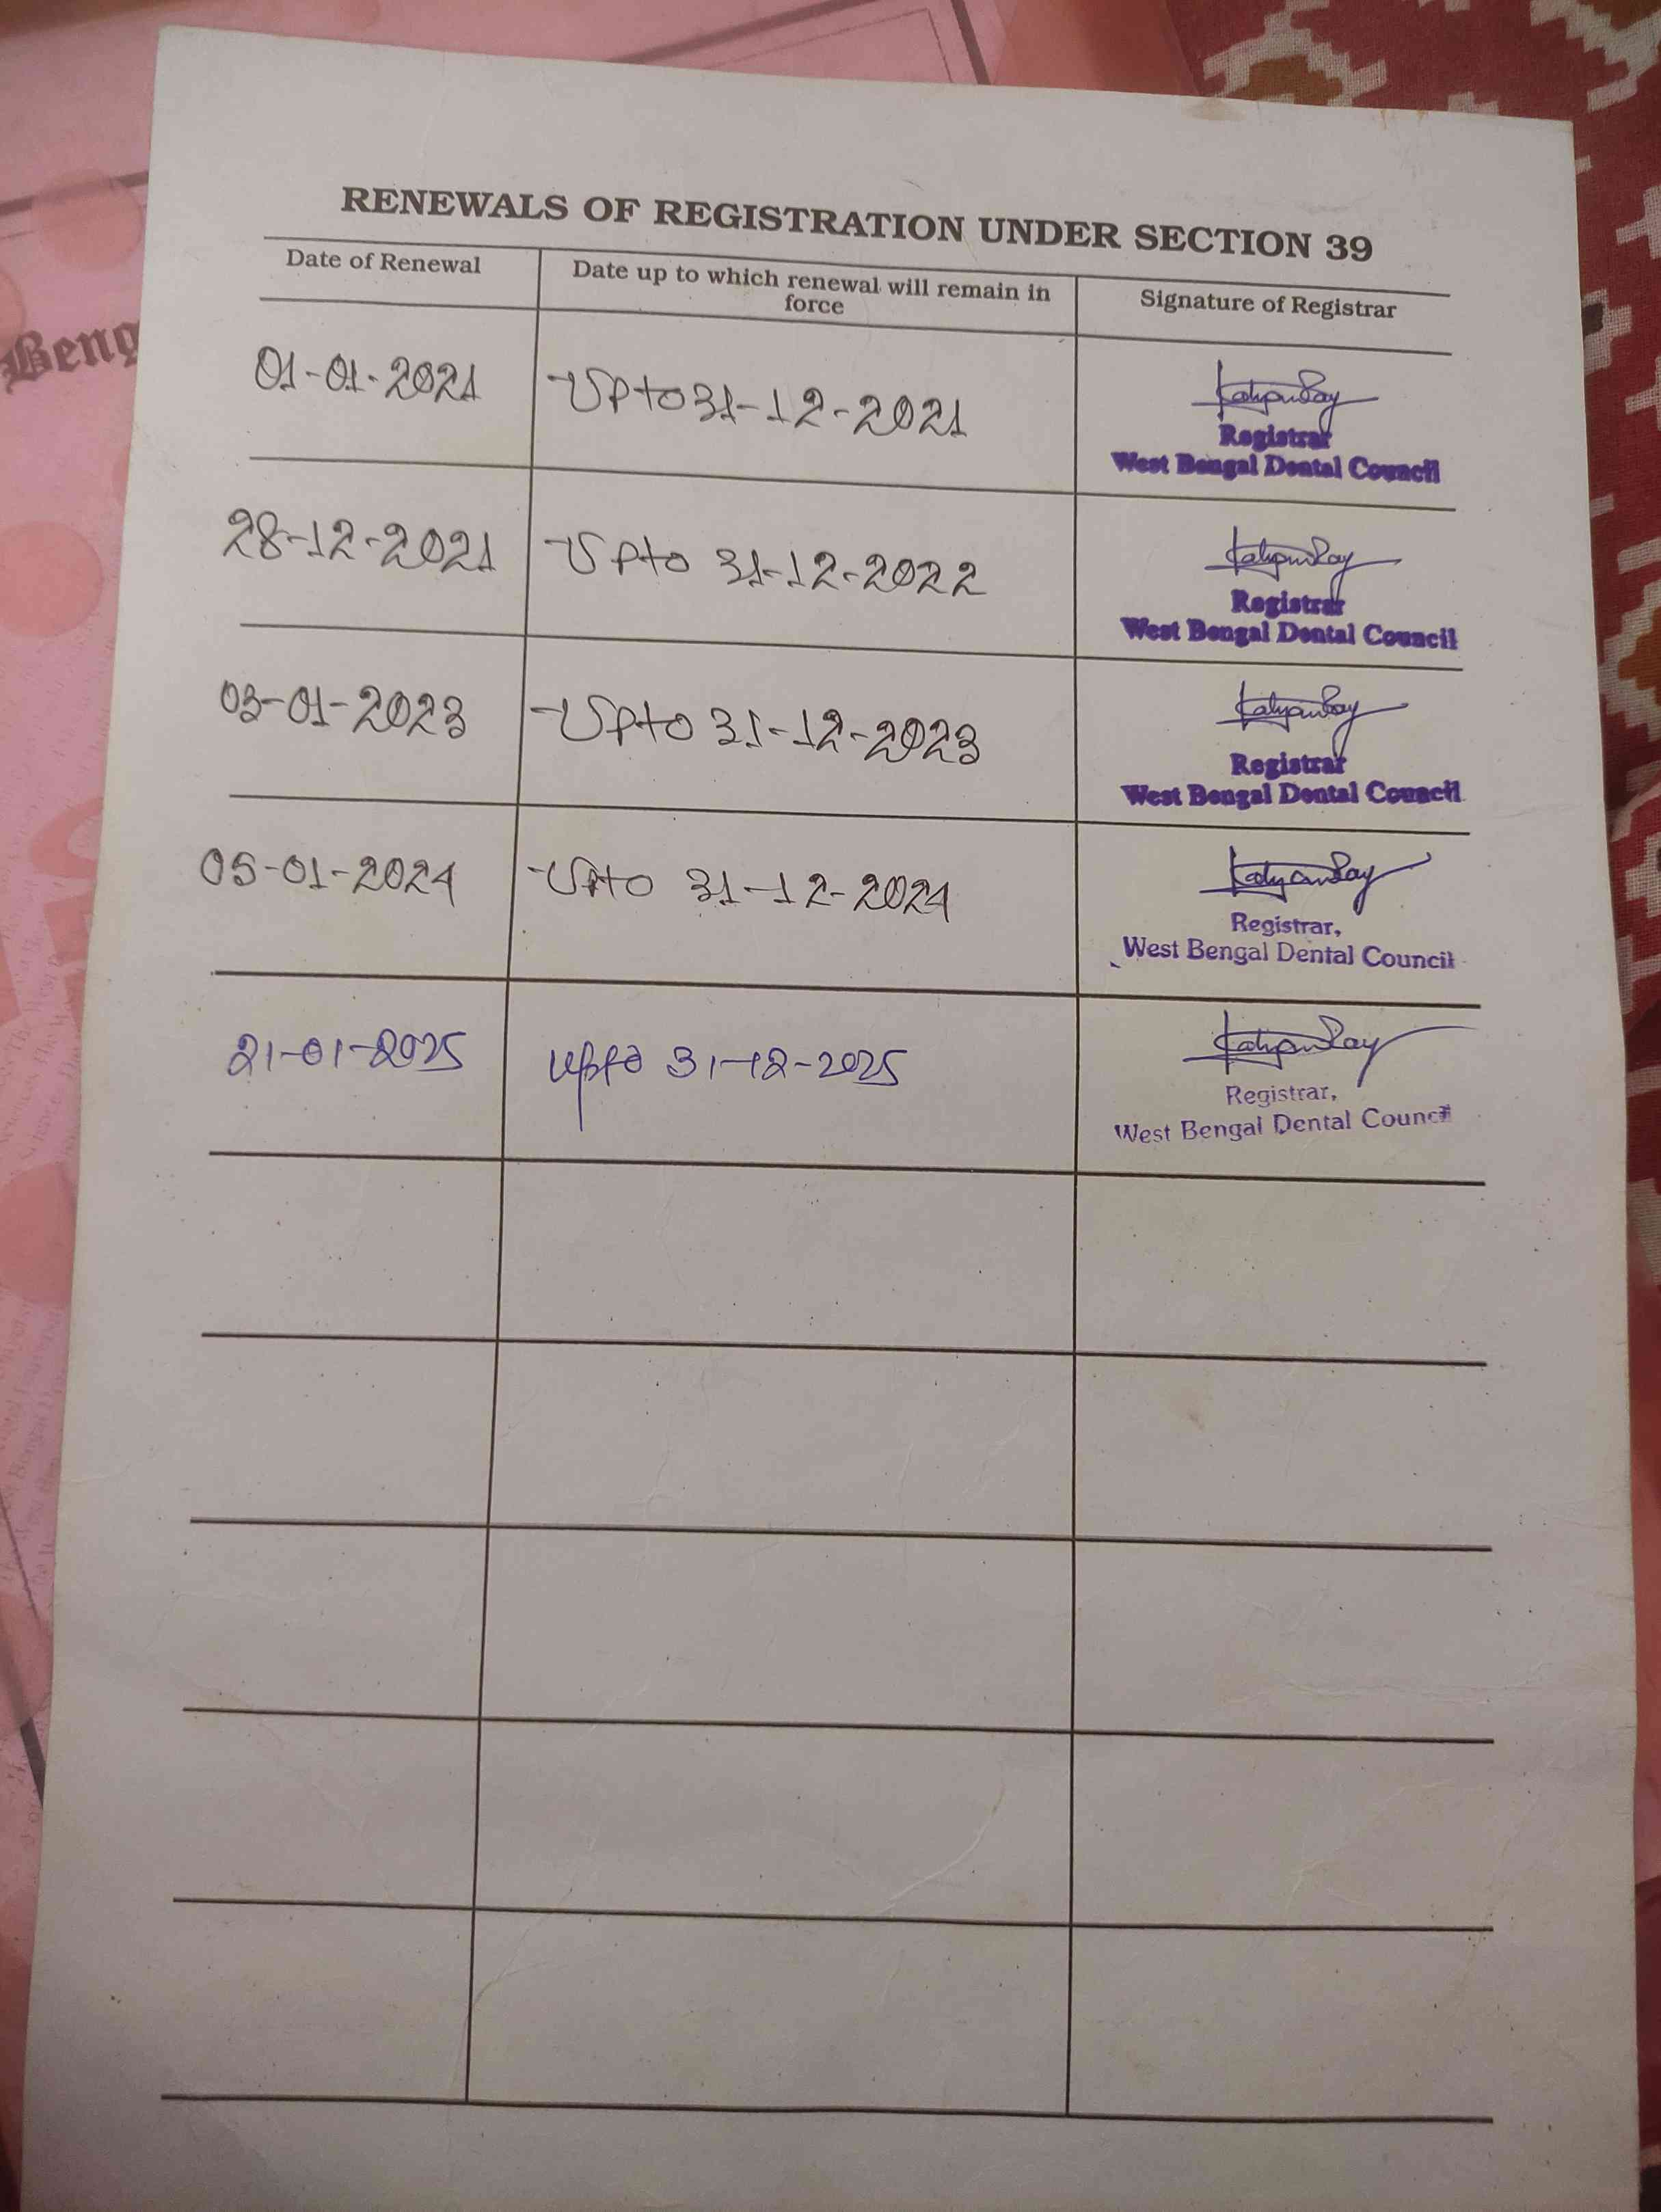 Beng
RENEWALS OF REGISTRATION UNDER SECTION 39
Date of Renewal
Date up to which renewal will remain in
force
Signature of Registrar
01-01-2021
Upto 31-12-2021
Registrar
West Bengal Dental Council
28-12-2021
Upto 31-12-2022
Registrar
West Bengal Dental Council
03-01-2023
Upto 31-12-2023
Registrar
West Bengal Dental Council
05-01-2024
Upto 31-12-2024
Registrar,
West Bengal Dental Council
21-01-2025
upto 31-12-2025
Registrar,
West Bengal Dental Council